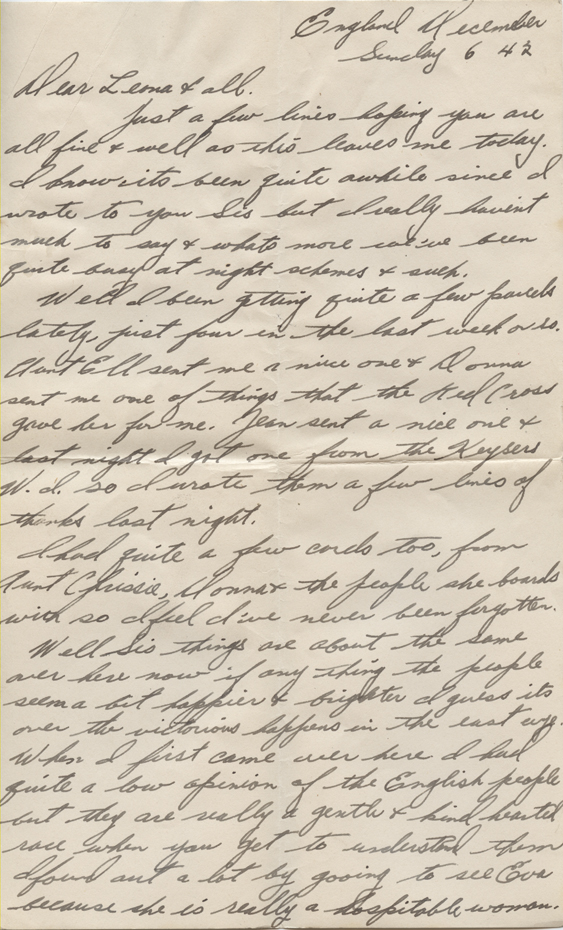 England December
Sunday 6 42
Dear Leona & all.
Just a few lines hoping you are
all fine & well as this leaves me today.
I know its been quite awhile since I
wrote to you Sis but I really havint
much to say & whats more we've been
quite busy at night schemes & such.
Well I been getting quite a few parcels
lately, just four in the last week or so.
Aunt Ell sent me a nice one & Donna
sent me one of things that the Red Cross
gave her for me. Jean sent a nice one &
last night I got one from the Keysers
W. I. so I wrote them a few lines of
thanks last night.
I had quite a few cards too, from
Aunt Chrissie, Donna & the people she boards
with so I feel I've never been forgotten.
Well Sis things are about the same
over here now if any thing the people
seem a bit happier & brighter I guess its
over the victorious happens in the east
When I first came over here I had
quite a low opinion of the English people
but they are really a gentle & kind hearted
race when you get to understand them
I found out a lot by gooing to see Eva
because she is really a hospitable woman.